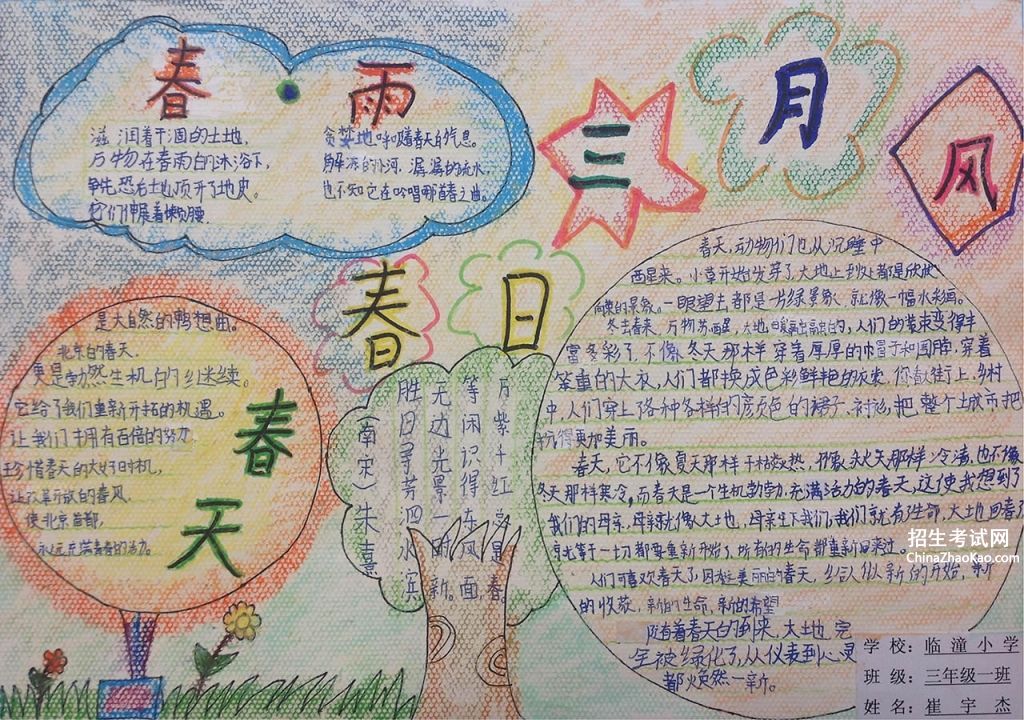 春·雨
滋润着干涸的土地,
万物在春雨的沐浴下,
争先恐后地顶开了地皮。
它们伸展着懒腰
贪婪地呼吸着春天的气息。
解冻的小河,潺潺的流水
也不知它在吟唱哪首春之曲。
三月风
春日
胜日寻芳泗水滨
无边光景一时新。
等闲识得东风面,
万紫千红总是春。
(南宋)朱熹
春天
是大自然的畅想曲。
北京的春天,
更是勃然生机的继续。
它给了我们重新开拓的机遇。
让我们拥有百倍的努力,
珍惜春天的大好时机,
让改革开放的春风,
使北京首都,
永远充满青春的活力。
春天,动物们也从沉睡中
醒来。小草开始发芽了,大地上到处都是欣欣
向荣的景象。一眼望去都是一片绿景象,就像一幅水彩画。
冬去春来,万物苏醒,大地
人们的着装变得丰
富多彩了,不像冬天那样穿着厚厚的帽子和围脖,穿着
笨重的大衣,人们都换成色彩鲜艳的衣裳,你看街上,乡村
中,人们穿上各种各样的颜色的裙子、衬衫,把整个土城市把
扮得更加美丽。
春天,它不像夏天那样干枯炎热,不像秋天那样冷清,也不像
冬天那样寒冷。而春天是一个生机勃勃,充满活力的春天,这使我想到了
我们的母亲,母亲就像大地,母亲生下我们,我们就有了生命,大地回春
等于一切都要重新开始了,所有的生命都重新回来过。
人们可喜欢春天了,因为在美丽的春天,给人以新的开始,新
的收获,新的生命,新的希望
随着春天的到来,大地完
全被绿化了,从仪表到心灵
都焕然一新。
招生考试网
ChinaZhaoKao.com
学校：临潼小学
班级：三年级一班
姓名：崔宇杰